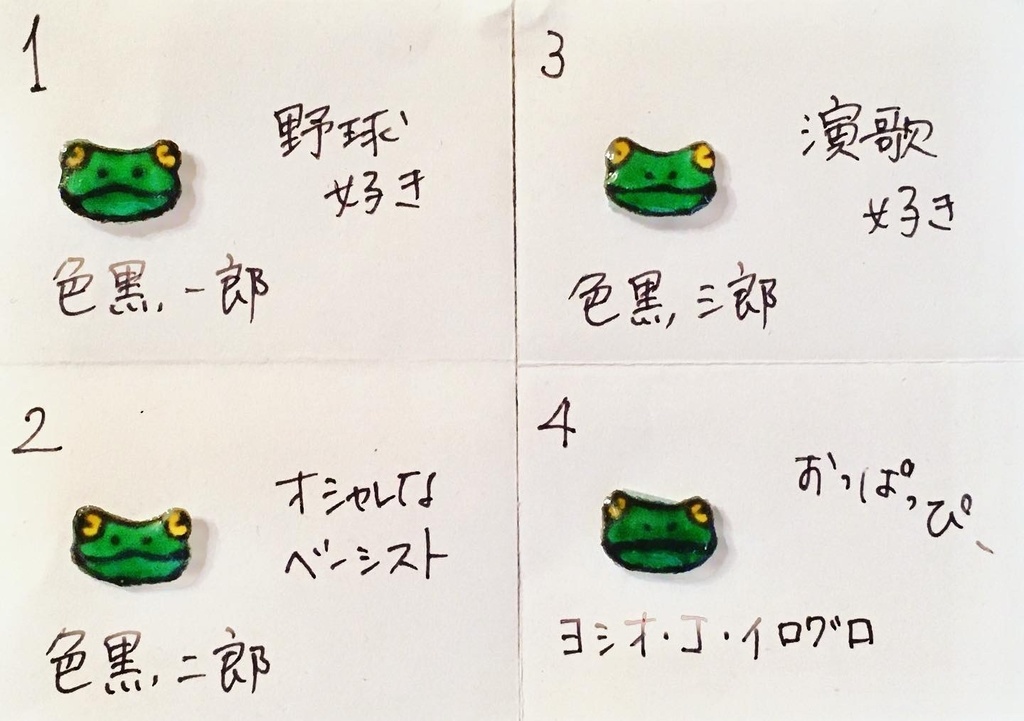 1
野球
好き
色黒,一郎
2
オシャレな
ベーシスト
色黒,二郎
3
演歌
好き
色黒,三郎
4
おっぱっぴ、
ヨシオ・J・イログロ